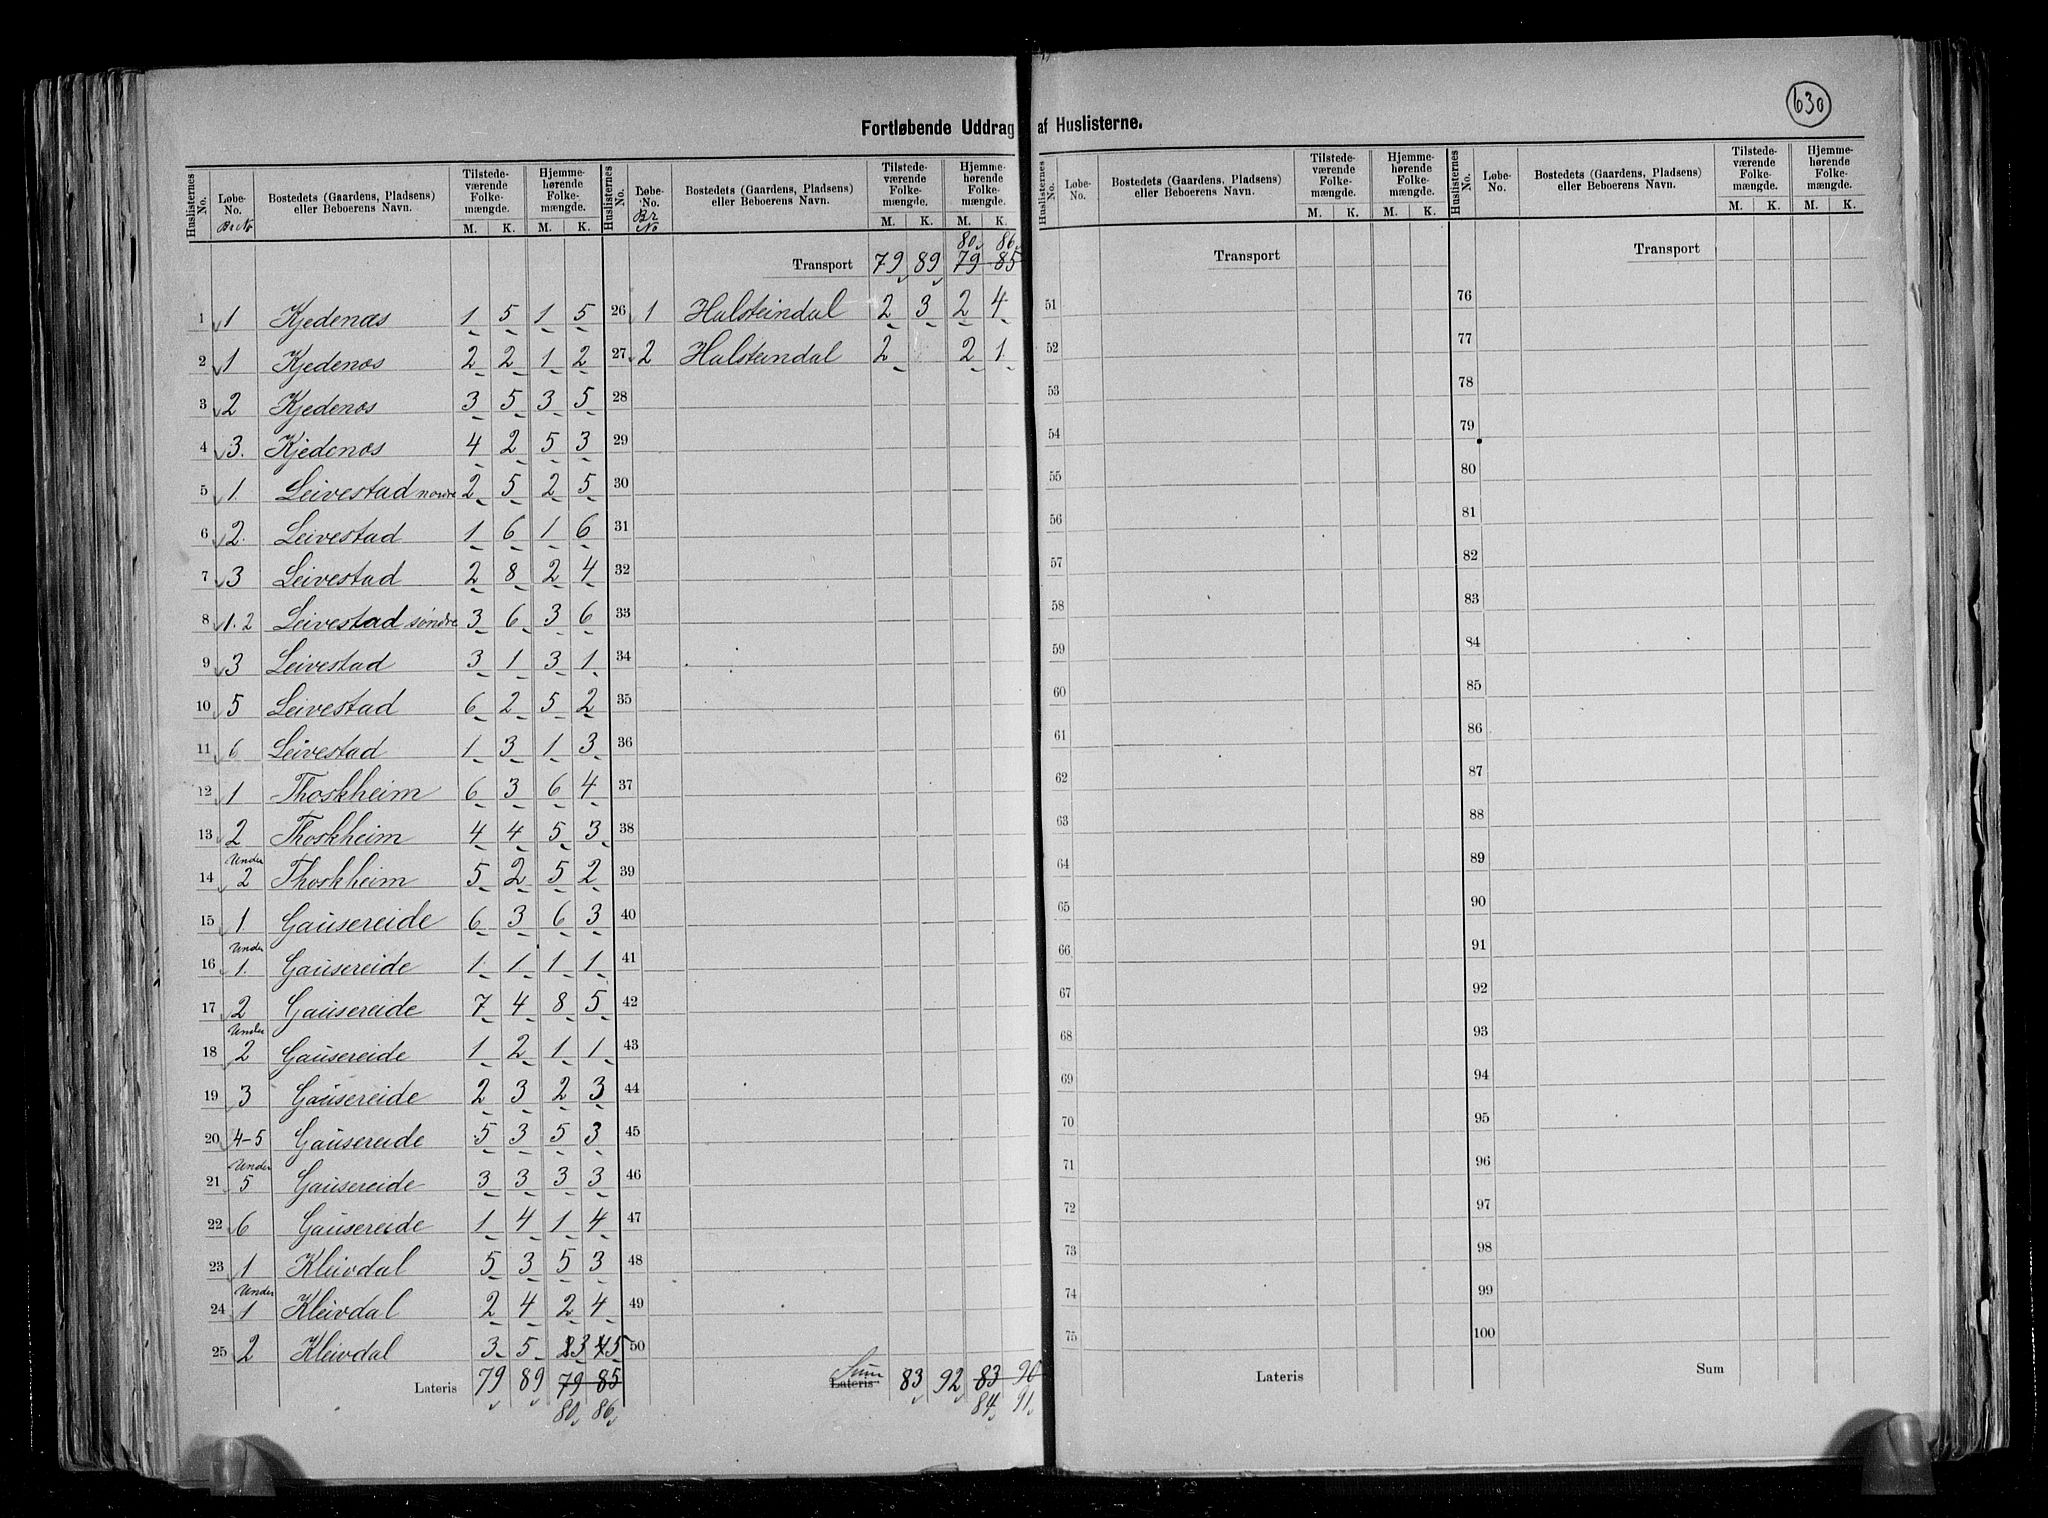 630
Fortløbende Uddrag af Huslisterne.
Huslisternes No. Løbe-No. Br No Bostedets (Gaardens, Pladsens) eller Beboerens Navn. Tilstedeværende Folkemængde. M. K. Hjemmehørende Folkemængde. M. K.
1 1 Kjedenæs 1 5 1 5
2 1 Kjedenæs 2 2 1 2
3 2 Kjedenæs 3 5 3 5
4 3. Kjedenæs 4 2 5 3
5 1. Leivestad nordre 2 5 2 5
6 2. Leivestad 1 6 1 6
7 3 Leivestad 2 8 2 4
8 1. 2 Leivestad søndre 3 6 3 6
9 3 Leivestad 3 1 3 1
10 5 Leivestad 6 2 5 2
11 6 Leivestad 1 3 1 3
12 1 Thoskheim 6 3 6 4
13 2 Thoskheim 4 4 5 3
14 Under 2 Thoskheim 5 2 5 2
15 1 Gausereide 6 3 6 3
16 Under 1. Gausereide 1 1 1 1
17 2 Gausereide 7 4 8 5
18 Under 2 Gausereide 1 2 1 1
19 3 Gausereide 2 3 2 3
20 4-5 Gausereide 5 3 5 3
21 Under 5 Gausereide 3 3 3 3
22 6 Gausereide 1 4 1 4
23 1 Kleivdal 5 3 5 3
24 Under 1 Kleivdal 2 4 2 4
25 2 Kleivdal 3 5 3 5
Lateris 79 89 79 85
80 86
Huslisternes No. Løbe-No. Br No Bostedets (Gaardens, Pladsens) eller Beboerens Navn. Tilstedeværende Folkemængde. M. K. Hjemmehørende Folkemængde. M. K.
80 86
Transport 79 89 79 85
26 1 Halsteindal 2 3 2 4
27 2 Halsteindal 2 2 1
28
29
30
31
32
33
34
35
36
37
38
39
40
41
42
43
44
45
46
47
48
49
50
Sum
Lateris 83 92 83 90
84 91
Huslisternes No. Løbe-No. Bostedets (Gaardens, Pladsens) eller Beboerens Navn. Tilstedeværende Folkemængde. M. K. Hjemmehørende Folkemængde. M. K.
Transport
51
52
53
54
55
56
57
58
59
60
61
62
63
64
65
66
67
68
69
70
71
72
73
74
75
Lateris
Huslisternes No. Løbe-No. Bostedets (Gaardens, Pladsens) eller Beboerens Navn. Tilstedeværende Folkemængde. M. K. Hjemmehørende Folkemængde. M. K.
Transport
76
77
78
79
80
81
82
83
84
85
86
87
88
89
90
91
92
93
94
95
96
97
98
99
100
Sum